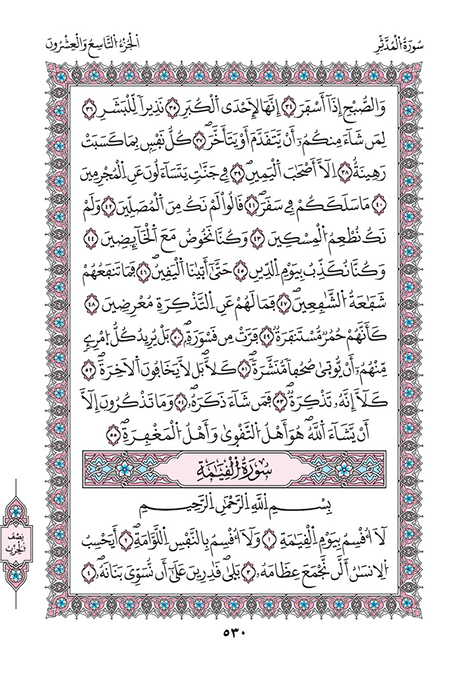 سُورَةُ الْمُدَّثِّرِ
الْجُزْءُ التَّاسِعُ وَالْعِشْرُونَ
وَالصُّبْحِ إِذَآ أَسْفَرَ ٣٤ إِنَّهَا لَإِحْدَى الْكُبَرِ ٣٥ نَذِيراً لِّلْبَشَرِ ٣٦
لِمَن شَآءَ مِنكُمُۥٓ أَنْ يَّتَقَدَّمَ أَوْ يَتَأَخَّرَ ٣٧ كُلُّ نَفْسِۭ بِمَا كَسَبَتْ
رَهِينَةٌ ٣٨ اِلَّآ أَصْحَٰبَ الْيَمِينِ ٣٩ فِى جَنَّٰتٍ يَتَسَآءَلُونَ عَنِ الْمُجْرِمِينَ
٤٠ مَا سَلَكَكُمْ فِى سَقَرَ ٤١ قَالُوا لَمْ نَكُ مِنَ الْمُصَلِّينَ ٤٢ وَلَمْ
نَكُ نُطْعِمُ الْمِسْكِينَ ٤٣ وَكُنَّا نَخُوضُ مَعَ الْخَآئِضِينَ ٤٤
وَكُنَّا نُكَذِّبُ بِيَوْمِ الدِّينِ ٤٥ حَتَّىٰٓ أَتَيٰنَا الْيَقِينُ ٤٦ فَمَا تَنفَعُهُمْ
شَفَٰعَةُ الشَّٰفِعِينَ ٤٧ فَمَا لَهُمْ عَنِ التَّذْكِرَةِ مُعْرِضِينَ ٤٨
كَأَنَّهُمْ حُمُرٌ مُّسْتَنفَرَةٌ ٤٩ فَرَّتْ مِن قَسْوَرَةٍ ٥٠ بَلْ يُرِيدُ كُلُّ امْرِئٍ
مِّنْهُمُۥٓ أَنْ يُّوتَىٰ صُحُفاً مُّنَشَّرَةً ٥١ كَلَّا بَل لَّا يَخَافُونَ اَلَاخِرَةَ ٥٢
كَلَّآ إِنَّهُۥ تَذْكِرَةٌ ٥٣ فَمَن شَآءَ ذَكَرَهُۥ ٥٤ وَمَا تَذْكُرُونَ إِلَّآ
أَنْ يَّشَآءَ اَللَّهُ هُوَ أَهْلُ التَّقْوَىٰ وَأَهْلُ الْمَغْفِرَةِ ٥٥
سُورَةُ الْقِيَٰمَةِ
بِسْمِ اللَّهِ الرَّحْمَٰنِ الرَّحِيمِ
لَآ أُقْسِمُ بِيَوْمِ الْقِيَٰمَةِ ١ وَلَآ أُقْسِمُ بِالنَّفْسِ اللَّوَّامَةِ ٢ أَيَحْسِبُ
الِانسَٰنُ أَلَّن نَّجْمَعَ عِظَامَهُۥ ٣ بَلَىٰ قَٰدِرِينَ عَلَىٰٓ أَن نُّسَوِّىَ بَنَانَهُۥ ٤
نِصْفُ
الْحِزْبِ
٥٣٠